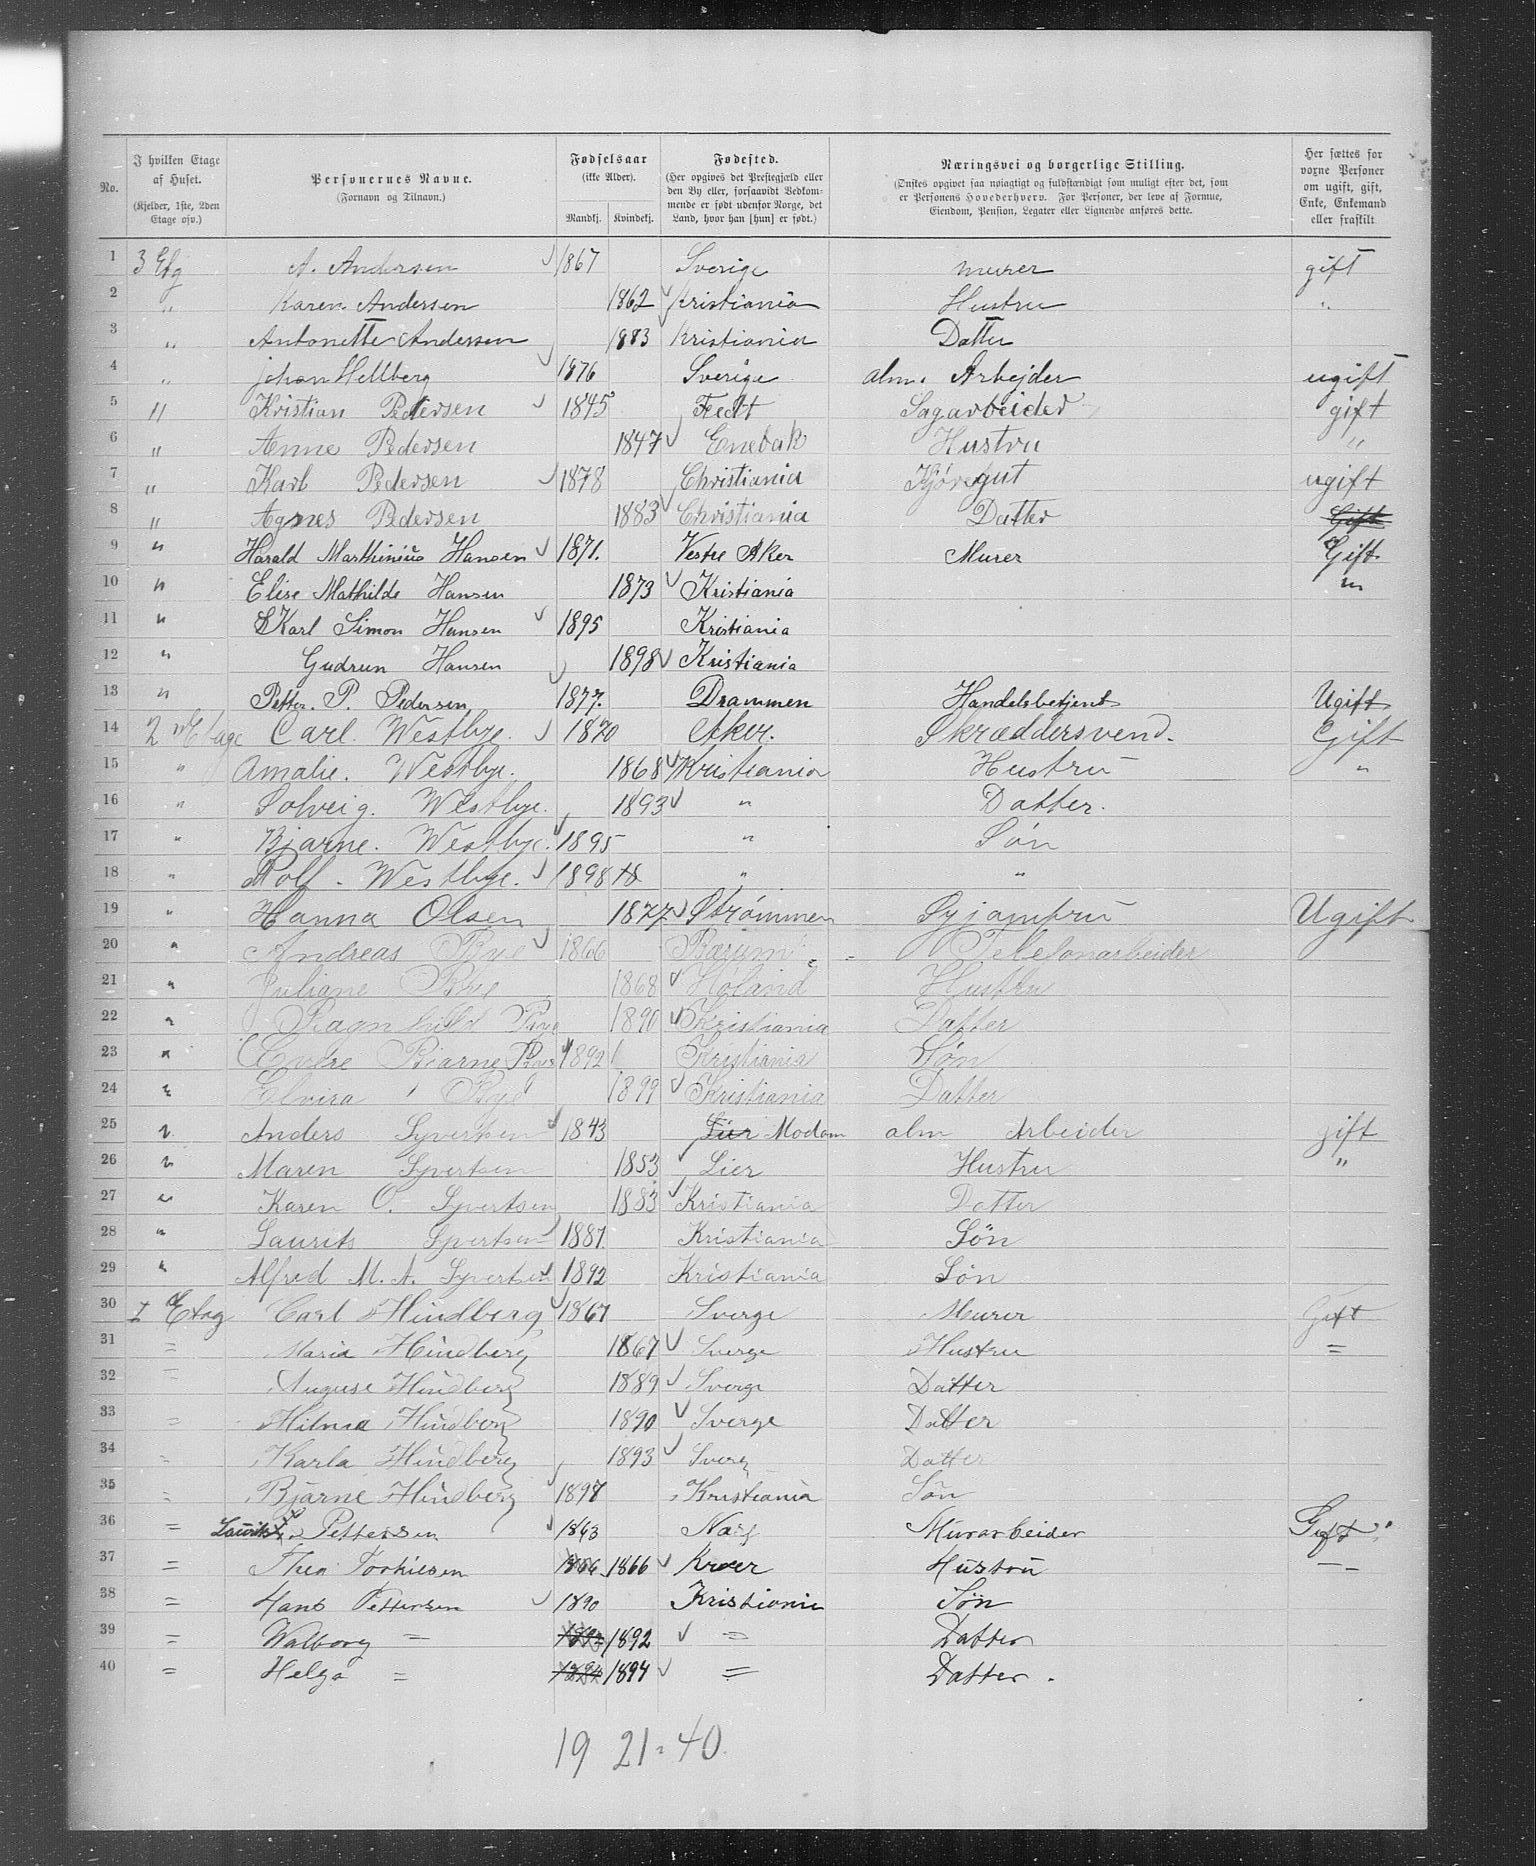 No.
I hvilken Etage af Huset. (Kjelder, 1ste, 2den Etage osv.)
Personernes Navne. (Fornavn og Tilnavn.)
Fødselsaar (ikke Alder). Mandkj. Kvindekj.
Fødested. (Her opgives det Prestegjæld eller den By eller, forsaavidt Vedkommende er født udenfor Norge, det Land, hvor han [hun] er født.)
Næringsvei og borgerlige Stilling. (Ønskes opgivet saa nøiagtigt og fuldstændigt som muligt efter det, som er Personens Hovederhverv. For Personer, der leve af Formue, Eiendom, Pension, Legater eller Lignende anføres dette.)
Her sættes for voxne Personer om ugift, gift, Enke, Enkemand eller fraskilt
1 3 Etg A. Andersen 1867 Sverige murer gift
2 " Karen Andersen 1862 Kristiania Hustru "
3 " Antonette Andersen 1883 Kristiania Datter
4 " Johan Hellberg 1876 Sverige alm. Arbejder ugift
5 " Kristian Pedersen 1845 Feedt Sagarbeider gift
6 " Anne Pedersen 1847 Enebak Hustru "
7 " Karl Pedersen 1878 Christiania Kjøregut ugift
8 " Agnes Pedersen 1883 Christiania Datter Gift
9 " Harald Marthinius Hansen 1871. Vestre Aker Murer Gift
10 " Elise Mathilde Hansen 1873 Kristiania "
11 " Karl Simon Hansen 1895 Kristiania
12 " Gudrun Hansen 1898 Kristiania
13 " Petter. P. Pedersen 1877. Drammen Handelsbetjent Ugift
14 2 Etage Carl. Westbye. 1870 Aker. Skræddersvend. Gift
15 " Amalie. Westbye. 1868 Kristiania Hustru "
16 " Solveig. Westbye. 1893 " Datter.
17 " Bjarne. Westbye. 1895 " Søn
18 " Rolf. Westbye. 1898 18 " "
19 " Hanna Olsen 1877 Strømmen Syjomfru Ugift
20 " Andreas Rye 1866 Bærum Telefonarbeider
21 " Juliane Rye 1868 Høland Hustru
22 " Ragnhild Rye 1890 Kristiania Datter
23 " Bjarne Rye 1892 Kristiania Søn
24 " Elvira Rye 1899 Kristiania Datter
25 " Anders Syvertsen 1843 Lier Modom alm Arbeider gift
26 " Maren Syvertsen 1853 Lier Hustru "
27 " Karen O. Syvertsen 1883 Kristiania Datter
28 " Laurits Syvertsen 1887. Kristiania Søn
29 " Alfred M. A. Syvertsen 1892 Kristiania Søn
30 I Etag Carl Hindberg 1867 Sverge Murer Gift
31 = Maria Hindberg 1867 Sverge Hustru =
32 = Auguse Hindberg 1889 Sverge Datter
33 = Hilma Hindberg 1890 Sverge Datter
34 = Karla Hindberg 1893 Sverg Datter
35 = Bjarne Hindberg 1898 Kristiania Søn
36 = Laurits Pettersen 1863 Murarbeider Gift
37 = Thea Torkilsen 1866 1866 Kroer Hustru —
38 = Hans Pettersen 1890 Kristiania Søn
39 = Walborg = 1892 1892 = Datter
40 = Helga = 1894 1894 = Datter.
19 21 = 40.